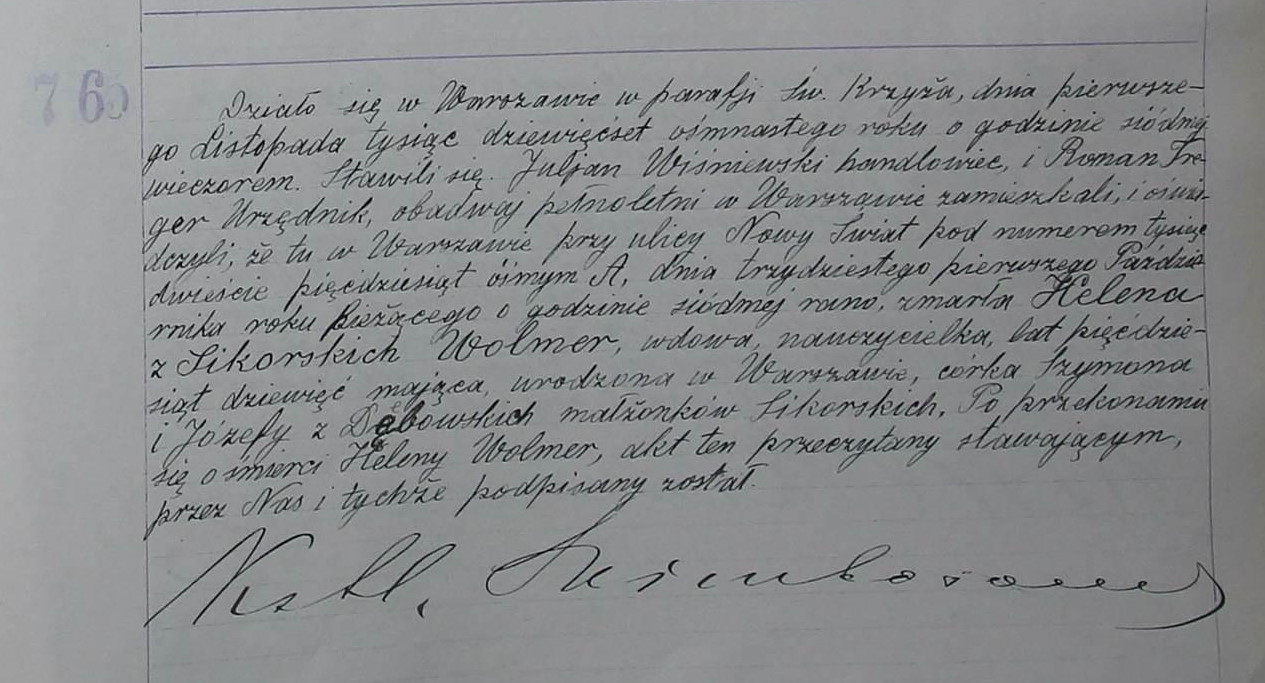 760
Działo się w Warszawie w parafji św. Krzyża, dnia pierwsze-
go Listopada tysiąc dziewięćset ośmnastego roku o godzinie siódmej
wieczorem. Stawili się. Juljan Wiśniewski handlowiec, i Roman Tre-
ger Urzędnik, obadwaj pełnoletni w Warszawie zamieszkali, i oświa-
dczyli, że tu w Warszawie przy ulicy Nowy Świat pod numerem tysiąc
dwieście pięćdziesiąt ósmym A, dnia trzydziestego pierwszego Paździe
rnika roku bieżącego o godzinie siódmej rano, zmarła Helena
z Sikorskich Wolmer, wdowa, nauczycielka, lat pięćdzie-
siąt dziewięć mająca, urodzona w Warszawie, córka Szymona
i Józefy z Dębowskich małżonków Sikorskich. Po przekonaniu
się o śmierci Heleny Wolmer, akt ten przeczytany stawającym,
przez Nas i tychże podpisany został.